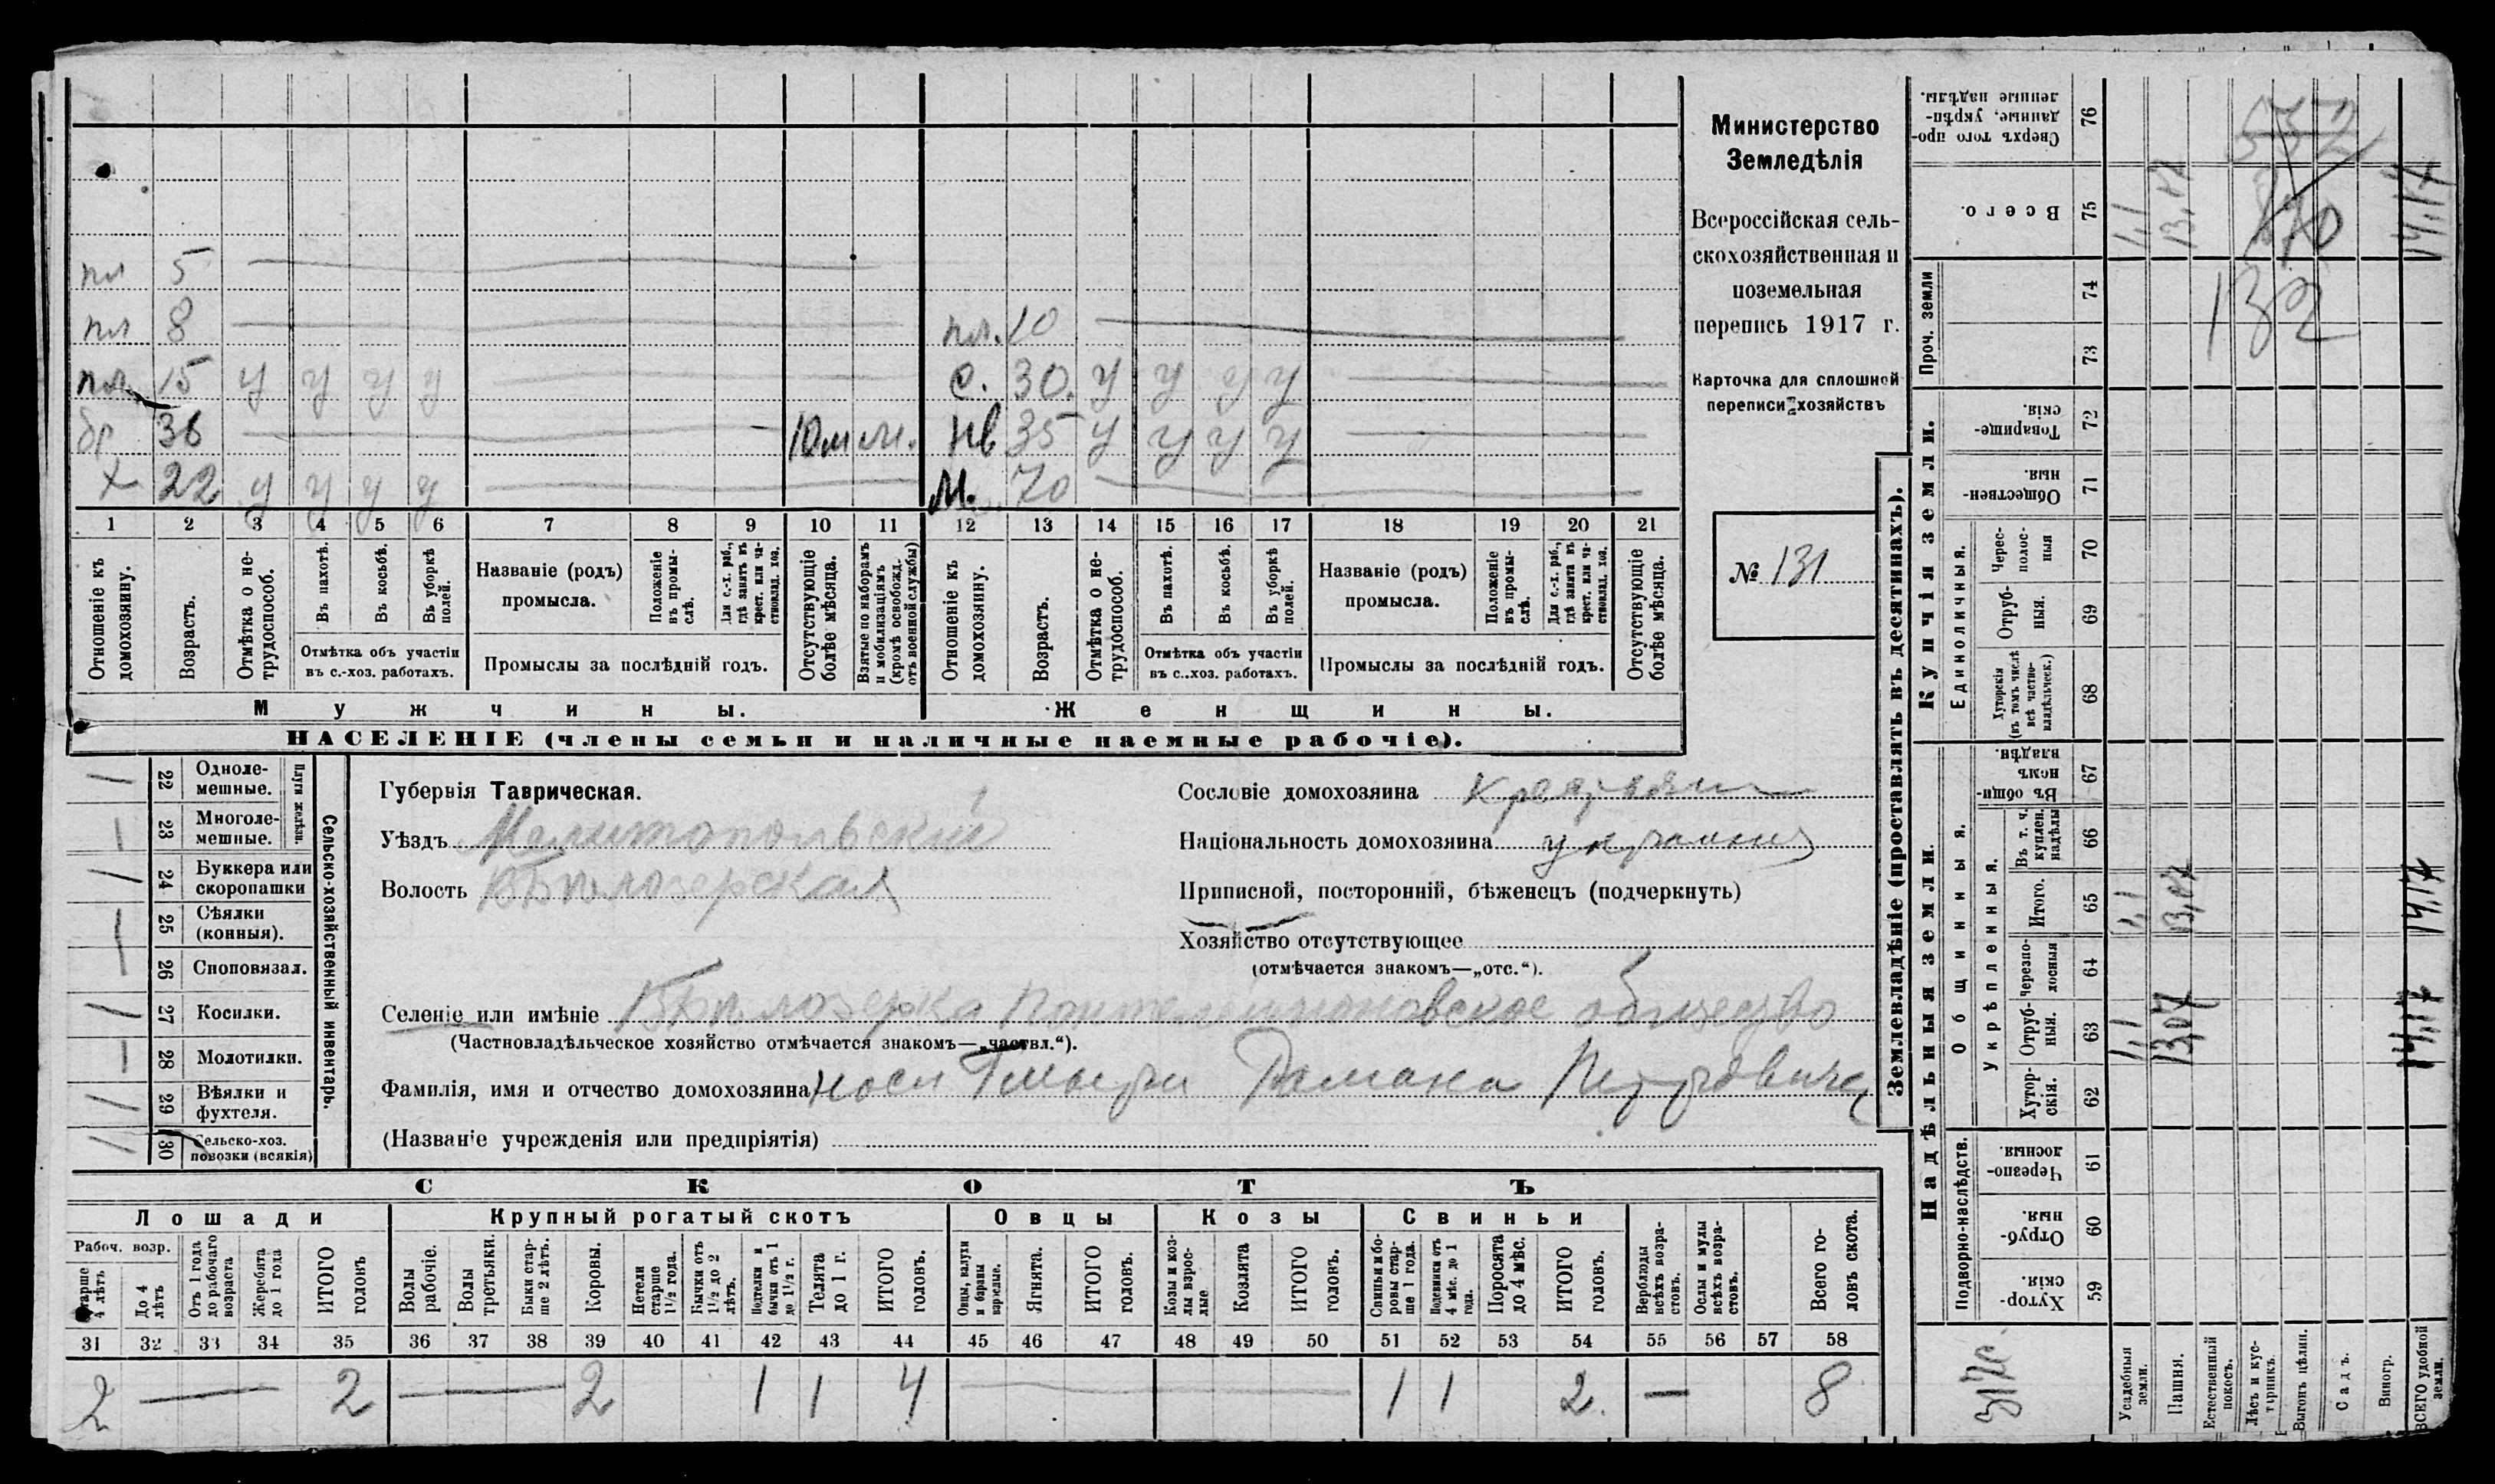 пл 5
пл 8
пл. 10
пл. 15 у у у у
с. 30. у у у у
бр 36
10 м
нв 35 у у у у
х 22 у у у у
м. 70
1 2 3 4 5 6 7 8 9 10 11 12 13 14 15 16 17 18 19 20 21
Отношеніе къ домохозяину.
Возрастъ.
Отмѣтка о нетрудоспособ.
Въ пахотѣ.
Въ косьбѣ.
Въ уборкѣ полей.
Отмѣтка объ участіи въ с.-хоз. работахъ.
Названіе (родъ) промысла.
Положеніе въ промыслѣ.
Для с.-х. раб., гдѣ занятъ въ крест. или частновлад. хоз.
Промыслы за послѣдній годъ.
Отсутствующіе болѣе мѣсяца.
Взятые по наборамъ и мобилизаціямъ (кромѣ освобожд. отъ военной службы)
Отношеніе къ домохозяину.
Возрастъ.
Отмѣтка о нетрудоспособ.
Въ пахотѣ.
Въ косьбѣ.
Въ уборкѣ полей.
Отмѣтка объ участіи въ с..хоз. работахъ.
Названіе (родъ) промысла.
Положеніе въ промыслѣ.
Для с.-х. раб., гдѣ занята въ крест. или частновлад. хоз.
Промыслы за послѣдній годъ.
Отсутствующіе болѣе мѣсяца.
Мужчины.
Женщины.
НАСЕЛЕНІЕ (члены семьи и наличные наемные рабочіе).
Министерство
Земледѣлія
Всероссійская сель-
скохозяйственная и
поземельная
перепись 1917 г.
Карточка для сплошной
переписи хозяйствъ
№ 131
Сельско-хозяйственный инвентарь.
Плуги желѣзн.
22 Однолемешные.
23 Многолемешные.
24 Буккера или скоропашки
25 Сѣялки (конныя).
26 Сноповязал.
27 Косилки.
28 Молотилки.
29 Вѣялки и фухтеля.
30 Сельско-хоз. повозки (всякія)
Губернія Таврическая.
Уѣздъ Мелитопольскій
Волость Бѣлозерская
Сословіе домохозяина
Національность домохозяина
Приписной, посторонній, бѣженецъ (подчеркнуть)
Хозяйство отсутствующее
(отмѣчается знакомъ—„отс.“).
Селеніе или имѣніе Бѣлозерка Пантелеймоновское общество
(Частновладѣльческое хозяйство отмѣчается знакомъ—„частвл.“).
Фамилія, имя и отчество домохозяина Романа Петровича
(Названіе учрежденія или предпріятія)
СКОТЪ
Лошади
Рабоч. возр.
Старше 4 лѣтъ
До 4 лѣтъ
Отъ 1 года до рабочаго возраста
Жеребята до 1 года
ИТОГО головъ
Крупный рогатый скотъ
Волы рабочіе.
Волы третьяки.
Быки старше 2 лѣтъ.
Коровы.
Нетели старше 1½ года.
Бычки отъ 1½ до 2 лѣтъ.
Подтелки и бычки отъ 1 до 1½ г.
Телята до 1 г.
ИТОГО головъ.
Овцы
Овцы, валухи и бараны взрослые.
Ягнята.
ИТОГО головъ.
Козы
Козы и козлы взрослые
Козлята
ИТОГО головъ.
Свиньи
Свиньи и боровы старше 1 года.
Подсвинки отъ 4 мѣс. до 1 года.
Поросята до 4 мѣс.
ИТОГО головъ.
Верблюды всѣхъ возрастовъ.
Ослы и мулы всѣхъ возрастовъ.
Всего головъ скота.
31 32 33 34 35 36 37 38 39 40 41 42 43 44 45 46 47 48 49 50 51 52 53 54 55 56 57 58
2 2 2 1 1 4 1 1 2. 8
Землевладѣніе (проставлять въ десятинахъ).
Купчія земли.
Надѣльныя земли.
Сверхъ того проданные, укрѣпленные надѣлы. 76
Всего. 75
Проч. земли 74 73
Товарищескія. 72
Общественныя 71
Единоличныя.
Чересполосныя 70
Отрубныя. 69
Хуторскія (въ томъ числѣ всѣ частновладѣльческ.) 68
Общинныя.
Въ общинномъ владѣн. 67
Укрѣпленныя.
Въ т. ч. куплен. надѣлы 66
Итого. 65
Черезполосныя 64
Отрубныя. 63
Хуторскія. 62
Подворно-наслѣдств.
Черезполосныя. 61
Отрубныя. 60
Хуторскія. 59
Усадебныя земли.
Пашня.
Естественный покосъ.
Лѣсъ и кустарникъ.
Выгонъ цѣлин.
Садъ.
Виногр.
ВСЕГО удобной земли.
532
132
1,1 13,07 14,17
1,1 13,07 14,17
1,1 13,07 14,17